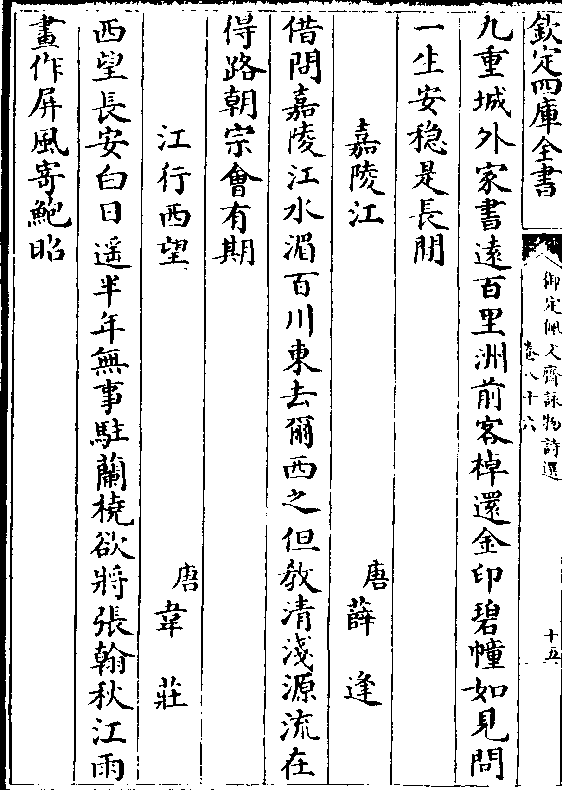 欽定四庫全書
御定佩文齋詠物詩選
卷八十六
十五
九重城外家書遠百里洲前客棹還金印碧幢如見問
一生安穏是長閒
嘉陵江
唐薛逢
借問嘉陵江水湄百川東去爾西之但教清淺源流在
得路朝宗會有期
江行西望
唐韋莊
西望長安白日遥半年無事駐蘭橈欲將張翰秋江雨
畫作屏風寄鮑昭